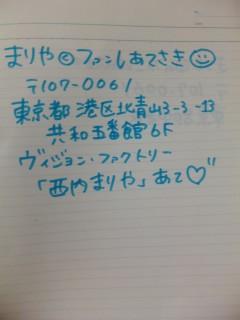 まりや©ファンレあてさき☺
〒107-0061
東京都 港区北青山3-3-13
共和五番館6F
ヴィジョン・ファクトリー
「西内まりや」あて♡